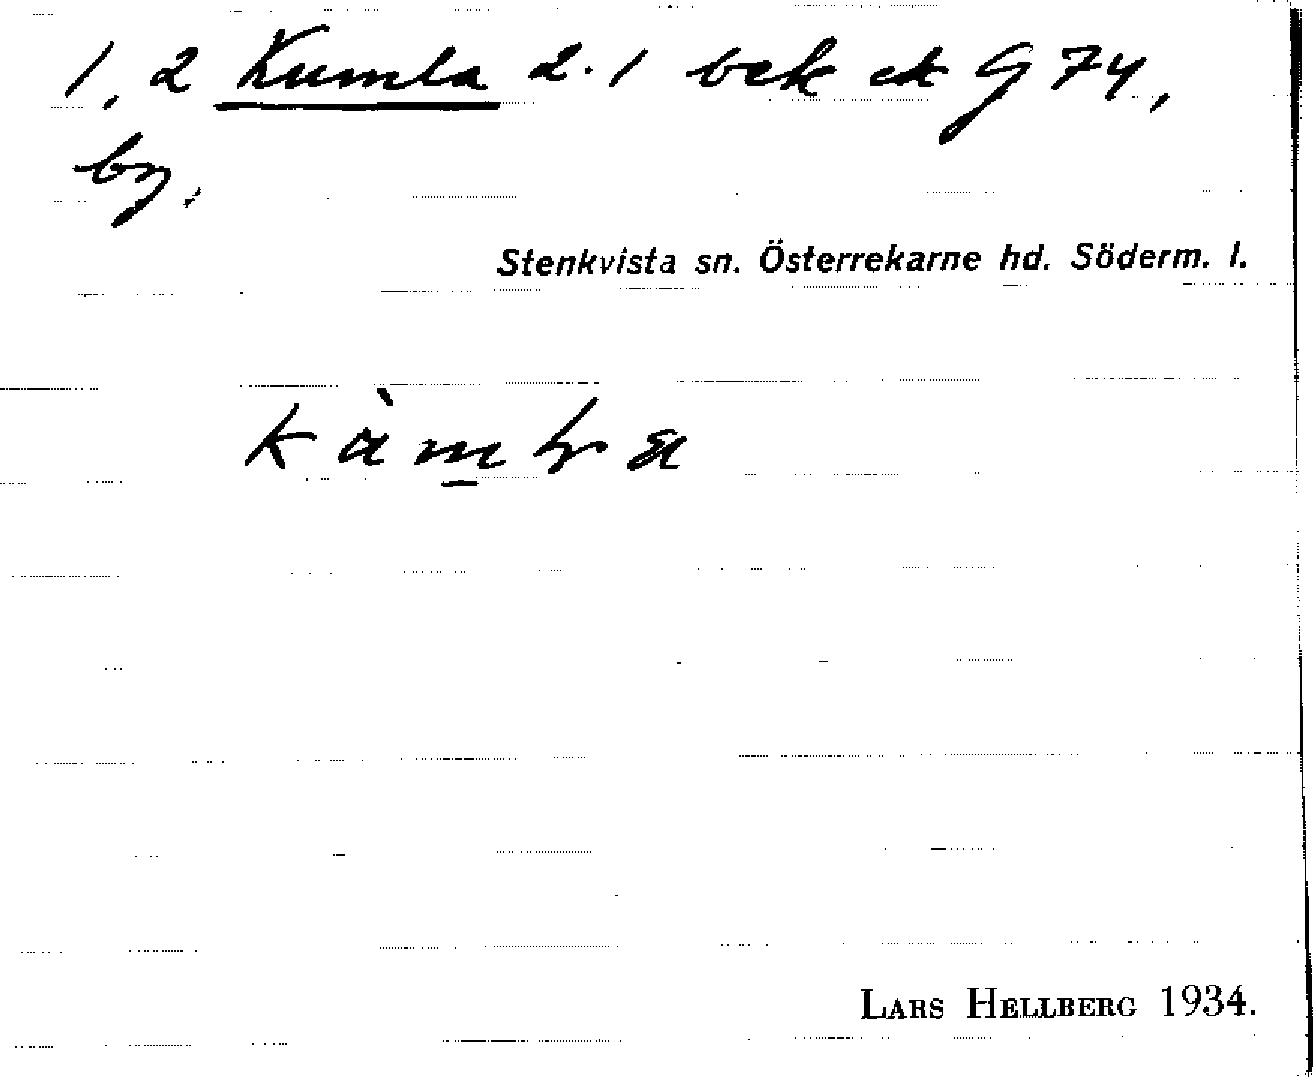 1, 2 Kumla 2.1 bek ek G 74,
by.
Stenkvista sn. Österrekarne hd. Söderm. l.
LARS HELLBERG 1934.